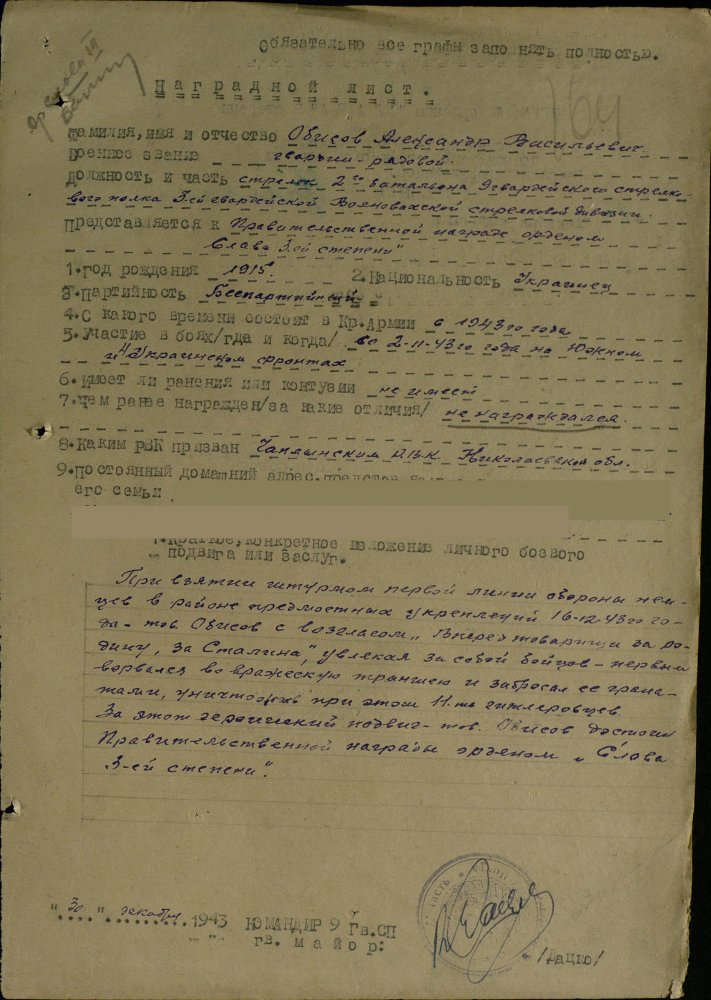 Обязательно все графы заполнять полностью.
Наградной лист.
164
Фамилия, имя и отчество Обисов Александр Васильевич
Военное звание гвардии-рядовой.
Должность и часть стрелок 2го батальона 9гвардейского стрелко-
вого полка 3-ей гвардейской Волновахской стрелковой дивизии.
Представляется к Правительственной награде орденом
"Слава 3-ей степени"
1. год рождения 1915. 2. Национальность Украинец
3. Партийность Беспартийный
4. С какого времени состоит в Кр. Армии с 1943го года
5. Участие в боях/гда и когда/ со 2-11-43го года на Южном
и 4 Украинском фронтах
6. Имеет ли ранения или контузии не имеет
7. Чем ранее награжден/за какие отличия/ не награждался.
8. Каким РВК призван Чаплынским РВК. Николаевской обл.
9. Постоянный домашний адрес.
его семьи
1. Краткое, конкретное изложение личного боевого
подвига или заслуг.
При взятии штурмом первой линии обороны нем-
цев в районе предмостных укреплений 16-12-43го го-
да - тов Обисов с возгласом "Вперед товарищи за ро-
дину, за Сталина", увлекая за собой бойцов - первым
ворвался во вражескую траншею и забросал ее грана-
тами, уничтожив при этом 11-ть гитлеровцев.
За этот героический подвиг - тов. Обисов достоин
Правительственной награды орденом "Слава
3-ей степени".
"30" декабря 1943 КОМАНДИР 9 Гв.СП
гв. майор:
/Дацко/